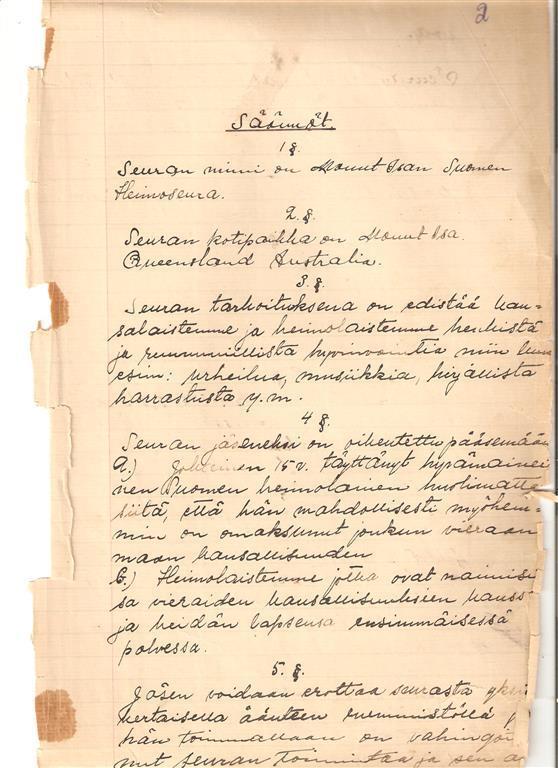 2
Säännöt.
1 §.
Seuran nimi on Mount Isan Suomen
Heimoseura.
2. §.
Seuran kotipaikka on Mount Isa.
Queensland Australia.
3. §.
Seuran tarkoituksena on edistää kan-
salaistemme ja heimolaistemme henkistä
ja ruumiillista hyvinvointia niin kuin
esim: urheilua, musiikkia, kirjallista
harrastusta y.m.
4 §.
Seuran jäseneksi on oikeutettu pääsemään
a.) Jokainen 15 v. täyttänyt hyvämainei
nen Suomen heimolainen huolimatta
siitä, että hän mahdollisesti myöhem-
min on omaksunut jonkun vieraan
maan kansallisuuden
b.) Heimolaistemme jotka ovat naimisi
sa vieraiden kansallisuuksien kanss
ja heidän lapsensa ensimmäisessä
polvessa.
5. §.
Jäsen voidaan erottaa seurasta yksi
kertaisella äänten enemmistöllä
hän toiminnallaan on vahingoi
nut seuran toimintaa ja sen